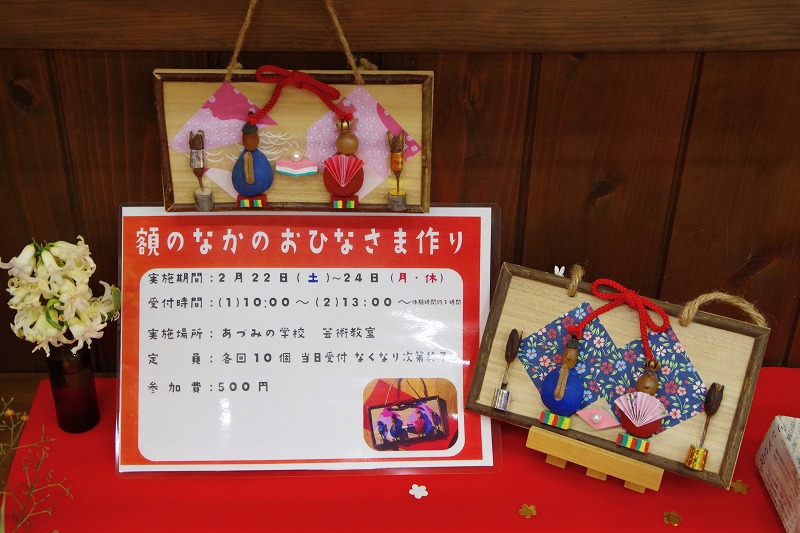 額のなかのおひなさま作り
実施期間：２月２２日(土)～２４日(月・休)
受付時間：(1)10:00～(2)13:00～体験時間約1時間
実施場所：あづみの学校　芸術教室
定　　員：各回１０個 当日受付 なくなり次第終了
参加費：５００円